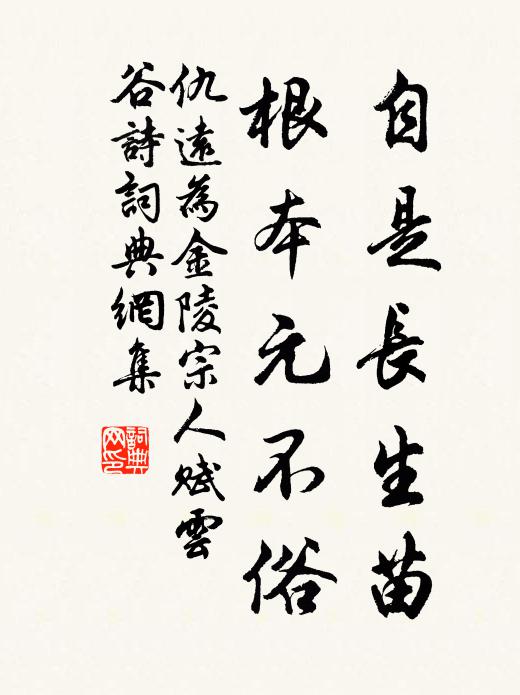 自是長生苗
根本元不俗
仇遠為金陵宗人賦雲
谷詩詞典網集
詞典
网印